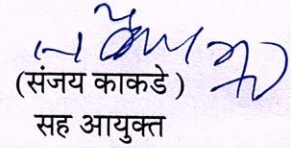 (संजय काकडे )
सह आयुक्त